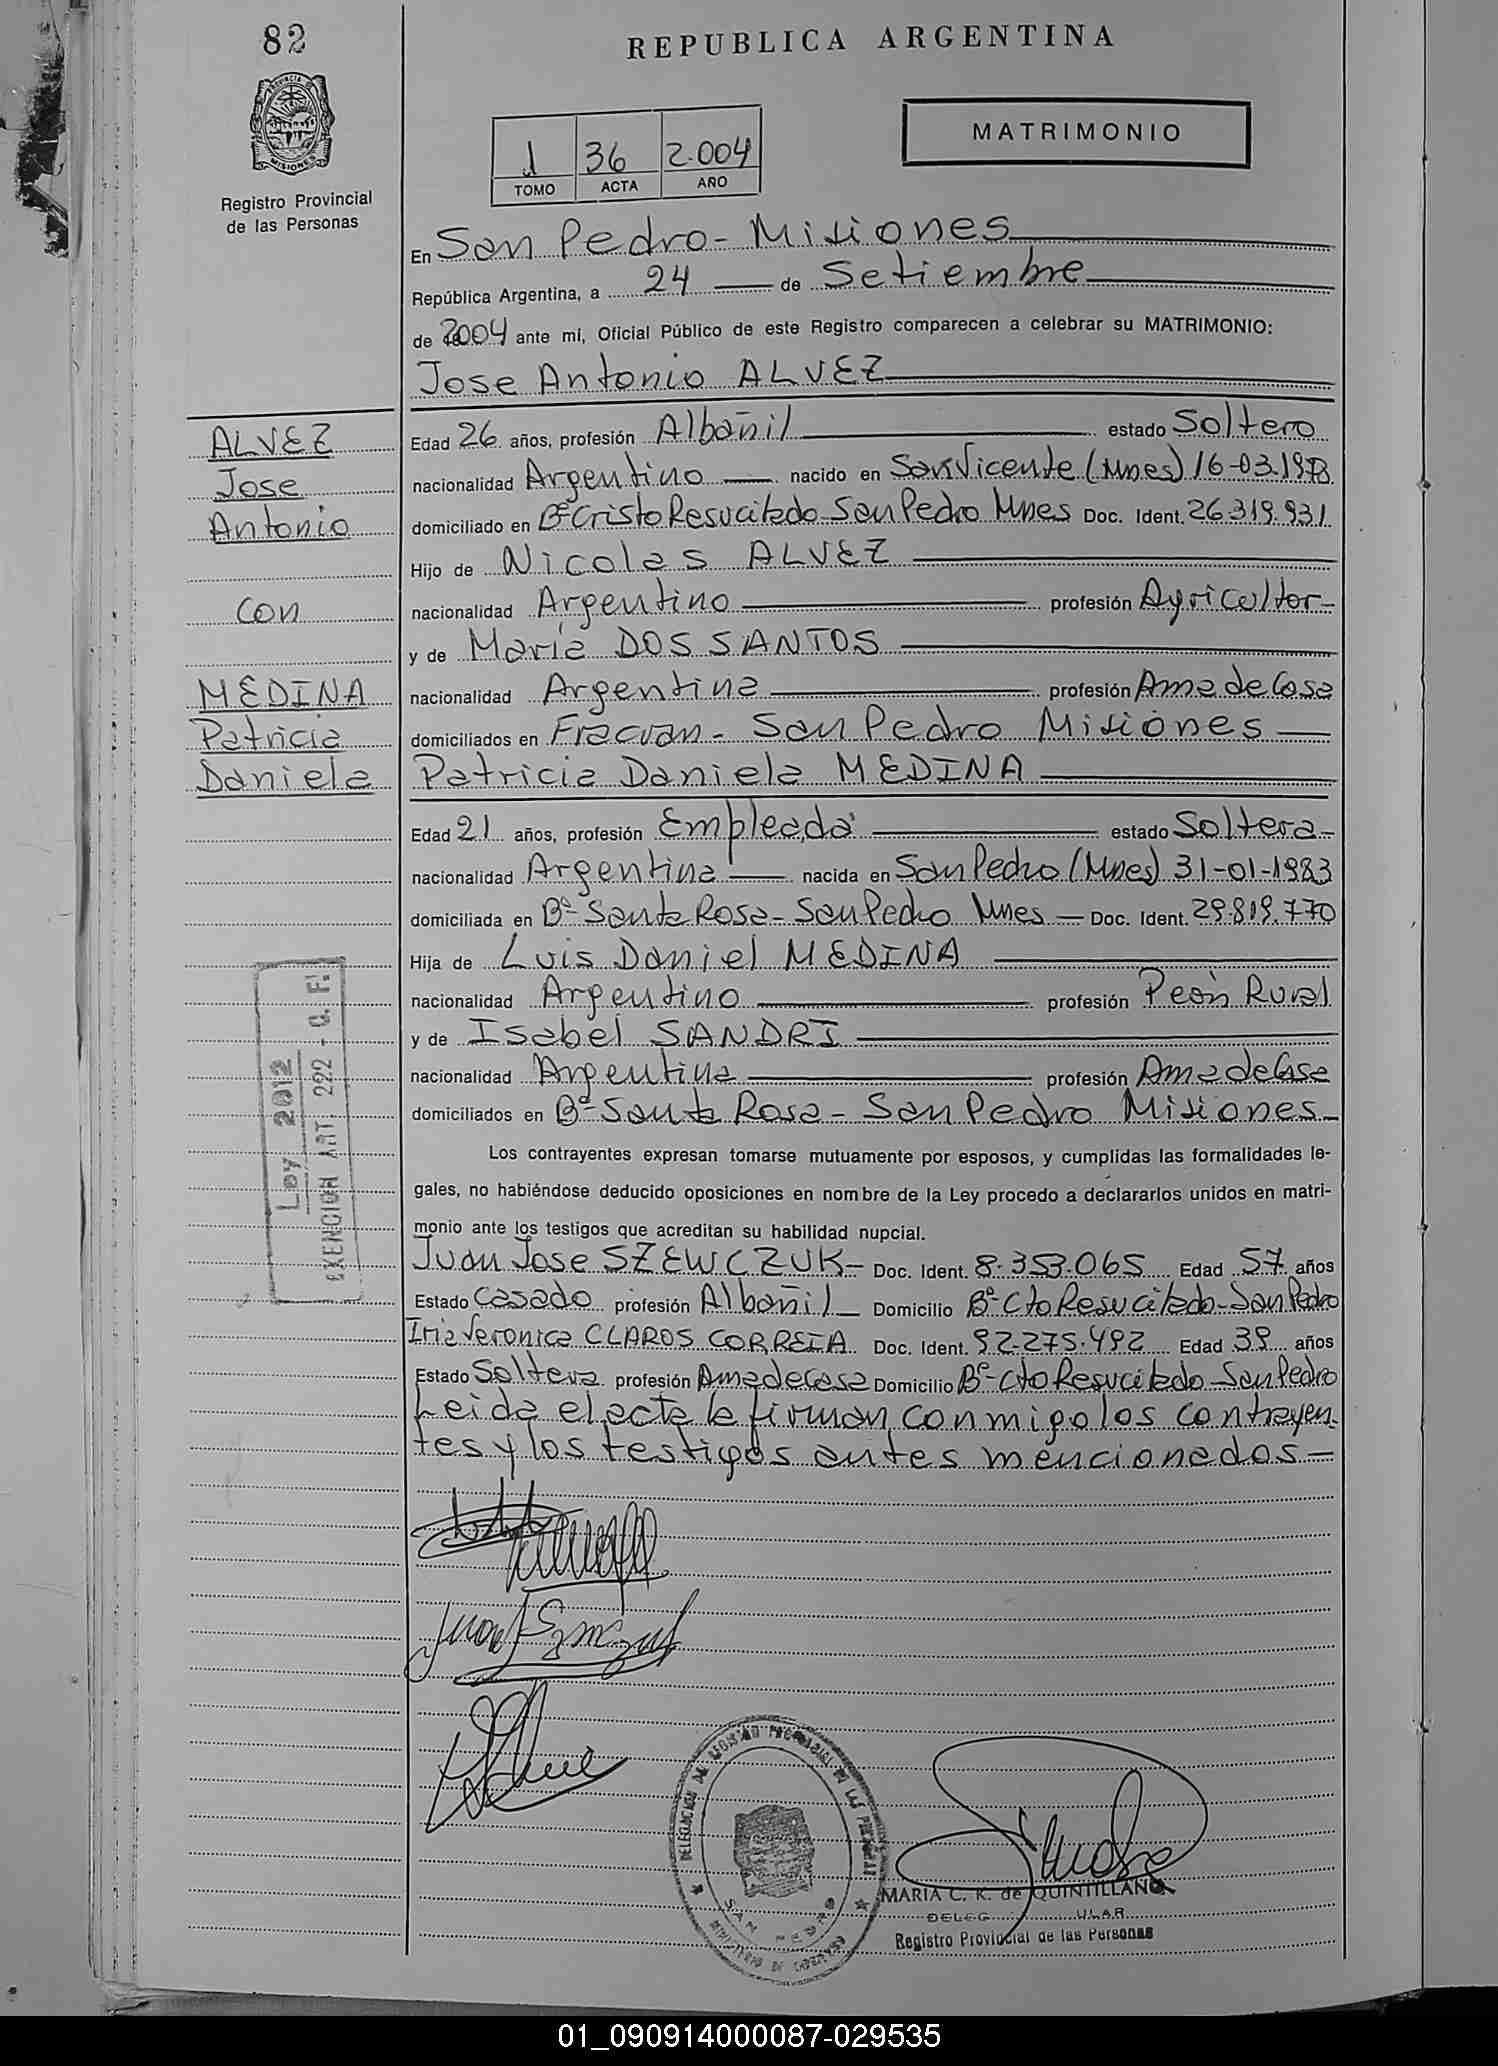 82
REPUBLICA ARGENTINA
PROVINCIA DE
MISIONES
Registro Provincial
de las Personas
1 36 2.004
TOMO ACTA AÑO
MATRIMONIO
En San Pedro - Misiones
República Argentina, a 24 de Setiembre
de 2004 ante mi, Oficial Público de este Registro comparecen a celebrar su MATRIMONIO:
Jose Antonio ALVEZ
ALVEZ
Jose
Antonio
con
MEDINA
Patricia
Daniela
Edad 26 años, profesión Albañil estado Soltero
nacionalidad Argentino nacido en San Vicente (Mnes) 16-03-1978
domiciliado en Bº Cristo Resucitado - San Pedro Mnes Doc. Ident. 26.319.931
Hijo de Nicolas ALVEZ
nacionalidad Argentino profesión Agricultor -
y de María DOS SANTOS
nacionalidad Argentina profesión Ama de Casa
domiciliados en Fracran - San Pedro Misiones
Patricia Daniela MEDINA
Edad 21 años, profesión Empleada estado Soltera -
nacionalidad Argentina nacida en San Pedro (Mnes) 31-01-1983
domiciliada en Bº Santa Rosa - San Pedro Mnes - Doc. Ident. 29.819.770
Hija de Luis Daniel MEDINA
nacionalidad Argentino profesión Peón Rural
y de Isabel SANDRI
nacionalidad Argentina profesión Ama de Casa
domiciliados en Bº Santa Rosa - San Pedro Misiones -
Ley 2012
EXENCION ART. 222 - C. F.
Los contrayentes expresan tomarse mutuamente por esposos, y cumplidas las formalidades le-
gales, no habiéndose deducido oposiciones en nombre de la Ley procedo a declararlos unidos en matri-
monio ante los testigos que acreditan su habilidad nupcial.
Juan Jose SZEWCZUK - Doc. Ident. 8.353.065 Edad 57 años
Estado Casado profesión Albañil Domicilio Bº Cto Resucitado - San Pedro
Iris Veronica CLAROS CORREIA Doc. Ident. 92.275.492 Edad 39 años
Estado Soltera profesión Ama de Casa Domicilio Bº Cto Resucitado - San Pedro
Leida el acta la firman conmigo los contrayen-
tes y los testigos antes mencionados -
DELEGACION DE REGISTRO PROVINCIAL DE LAS PERSONAS
SAN PEDRO
MINISTERIO DE GOBIERNO
MARIA C. K. de QUINTILLAN
Registro Provincial de las Personas
01_090914000087-029535